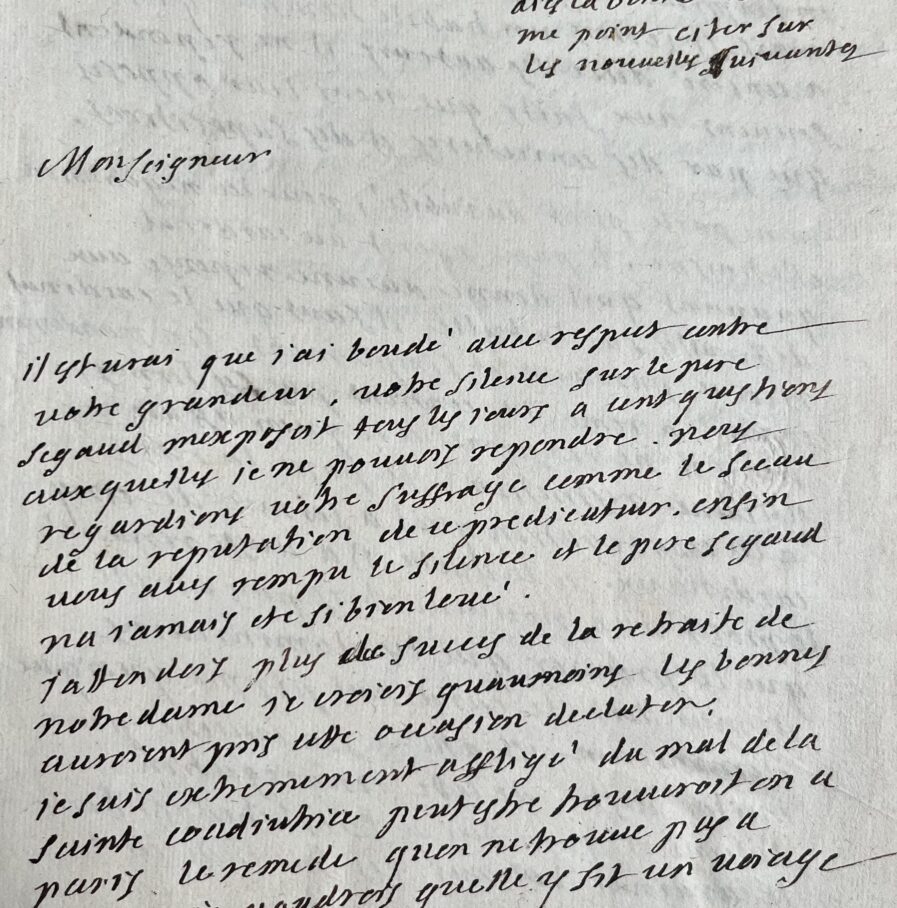 me point citer sur
les nouuelles suiuantes
Monseigneur
il est urai que iai boudé auec respect contre
votre grandeur, votre silence sur le pere
segaud mexposoit tous les iours a cent questions
auxquelles ie ne pouuois repondre. nous
regardions votre suffrage comme le sceau
de la reputation de ce predicateur. enfin
uous aues rempu le silence et le pere segaud
na iamais ete si bien loué.
iattendois plus de succes de la retraite de
notre dame ie croiois quaumoins les bonnes
auroient pris cette occasion declater.
ie suis extremement affligé du mal de la
sainte coadiutrice peutestre trouueroit on a
paris le remede quon ne trouue pas a
uoudrois quelle y fit un uoiage